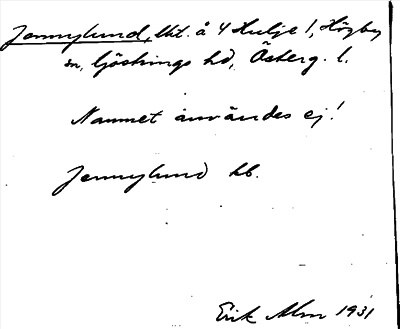 Jennylund, lht. å 4 Hulje 1, Högby
sn, Göstrings hd, Österg. l.
Namnet användes ej!
Jennylund hb.
Erik Alm 1931